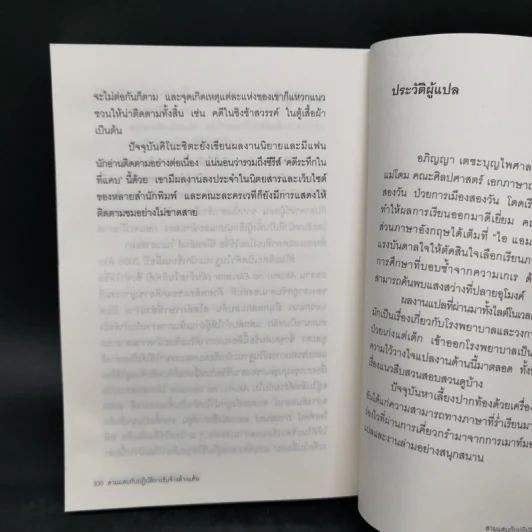 จะไม่ต่อกันก็ตาม และจุดเกิดเหตุแต่ละแห่งของเขาก็แหวกแนว
ชวนให้น่าติดตามทั้งสิ้น เช่น คดีในชิงช้าสวรรค์ ในตู้เสื้อผ้า
เป็นต้น
ปัจจุบันคิโนะชิตะยังเขียนผลงานนิยายและมีแฟน
นักอ่านติดตามอย่างต่อเนื่อง แน่นอนว่ารวมถึงซีรีส์ 'คดีระทึกใน
ที่แคบ' นี้ด้วย เขามีผลงานลงประจำในนิตยสารและเว็บไซต์
ของหลายสำนักพิมพ์ และคณะละครเวทีก็ยังมีการแสดงให้
ติดตามชมอย่างไม่ขาดสาย
330 สามแสบกับปฏิบัติการรับจ้างล้างแค้น
ประวัติผู้แปล
อภิญญา เตชะบุญไพศาล
แม่โดม คณะศิลปศาสตร์ เอกภาษาญ
สองวัน ป่วยการเมืองสองวัน โดดเรีย
ทำให้ผลการเรียนออกมาดีเยี่ยม คณ
ส่วนภาษาอังกฤษได้เต็มที่ "ไอ แอม
แรงบันดาลใจให้ตัดสินใจเลือกเรียนภ
การศึกษาที่บอบช้ำจากความเกเร ด้
สามารถค้นพบแสงสว่างที่ปลายอุโมงค์
ผลงานแปลที่ผ่านมาทั้งไลต์ในเวล
มักเป็นเรื่องเกี่ยวกับโรงพยาบาลและวงกา
ป่วยเก่งแต่เด็ก เข้าออกโรงพยาบาลเป็น
ความไว้วางใจแปลงานด้านนี้มาตลอด ทั้ง
เรื่องแนวสืบสวนสอบสวนดูบ้าง
ปัจจุบันหาเลี้ยงปากท้องด้วยเครื่อง
อันได้แก่ความสามารถทางภาษาที่ร่ำเรียนมา
ผ่านการเคี่ยวกรำมาจากการเมาท์มอ
แปลและงานล่ามอย่างสนุกสนาน